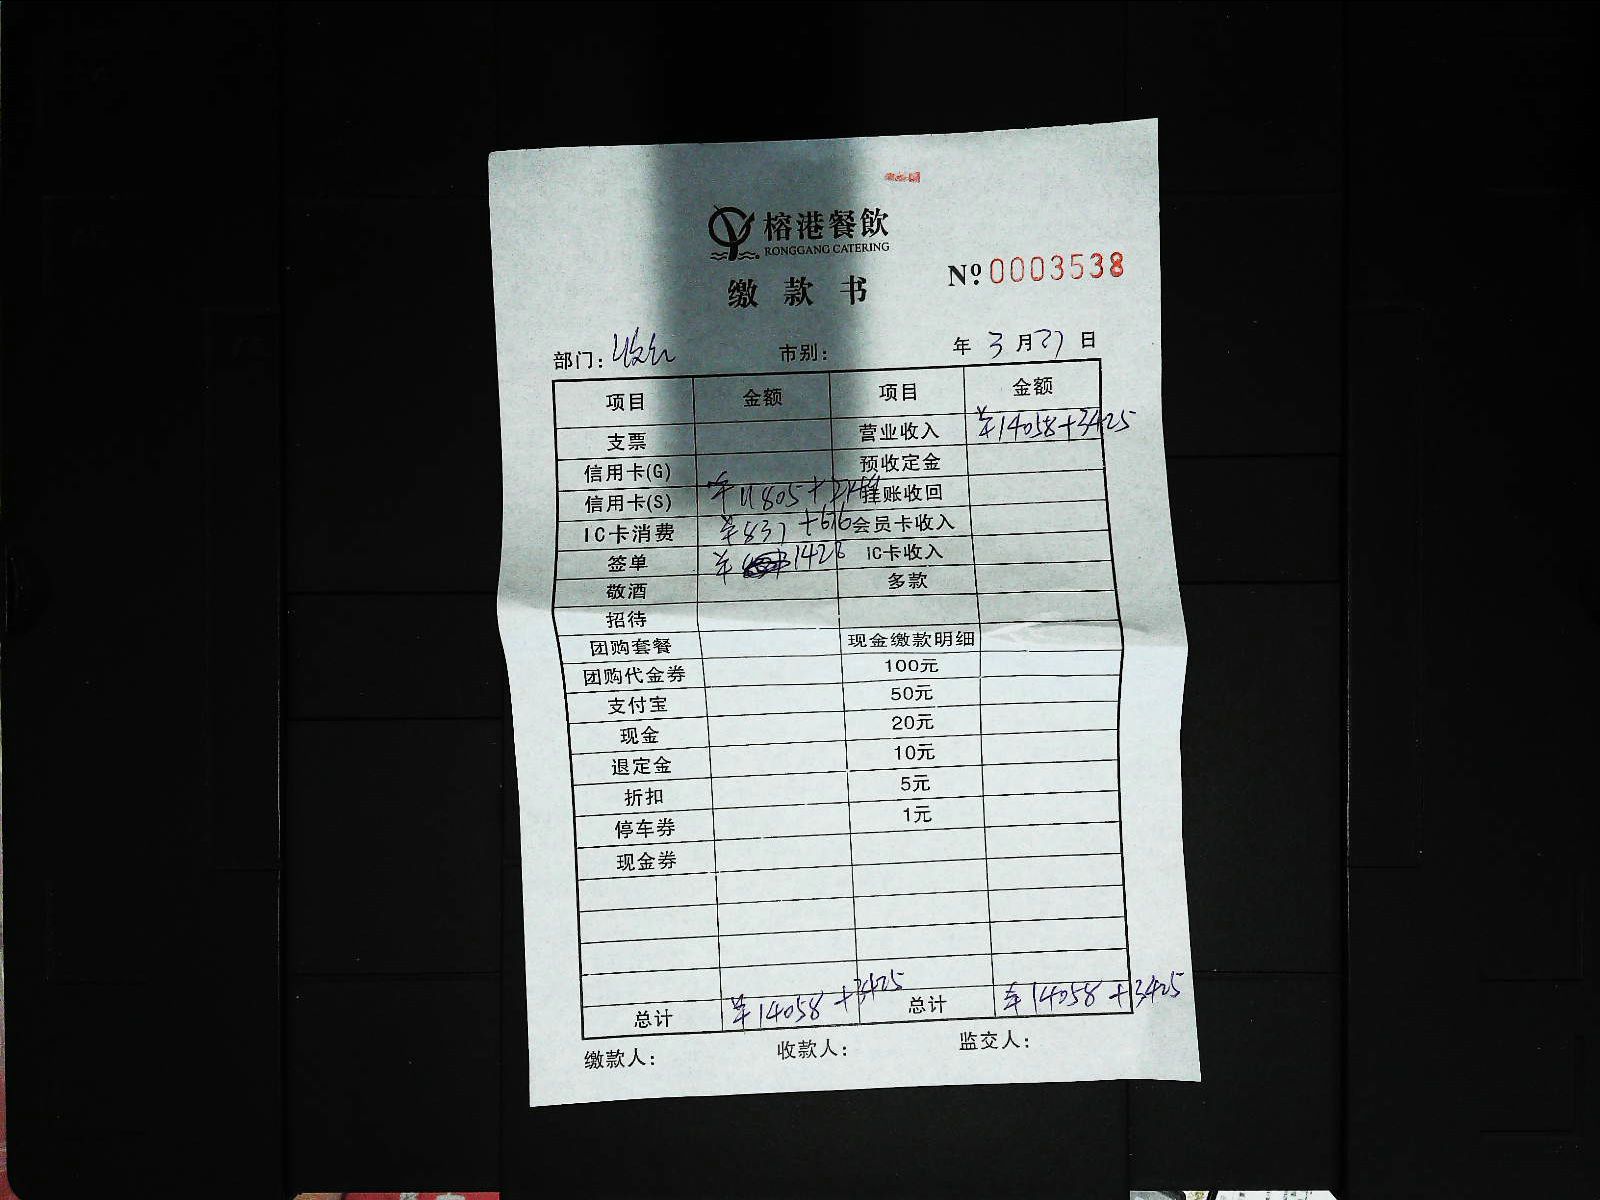 榕港餐飲
RONGGANG CATERING
缴款书
No. 0003538
部门: 市别: 年 3 月 27 日
项目 金额 项目 金额
支票 营业收入 ¥14058+3425
信用卡(G) 预收定金
信用卡(S) ¥11805+ 挂账收回
IC卡消费 ¥837+676 会员卡收入
签单 ¥ 1428 IC卡收入
敬酒 多款
招待
团购套餐 现金缴款明细
团购代金券 100元
支付宝 50元
现金 20元
退定金 10元
折扣 5元
停车券 1元
现金券
总计 ¥14058+3425 总计 ¥14058+3425
缴款人: 收款人: 监交人: